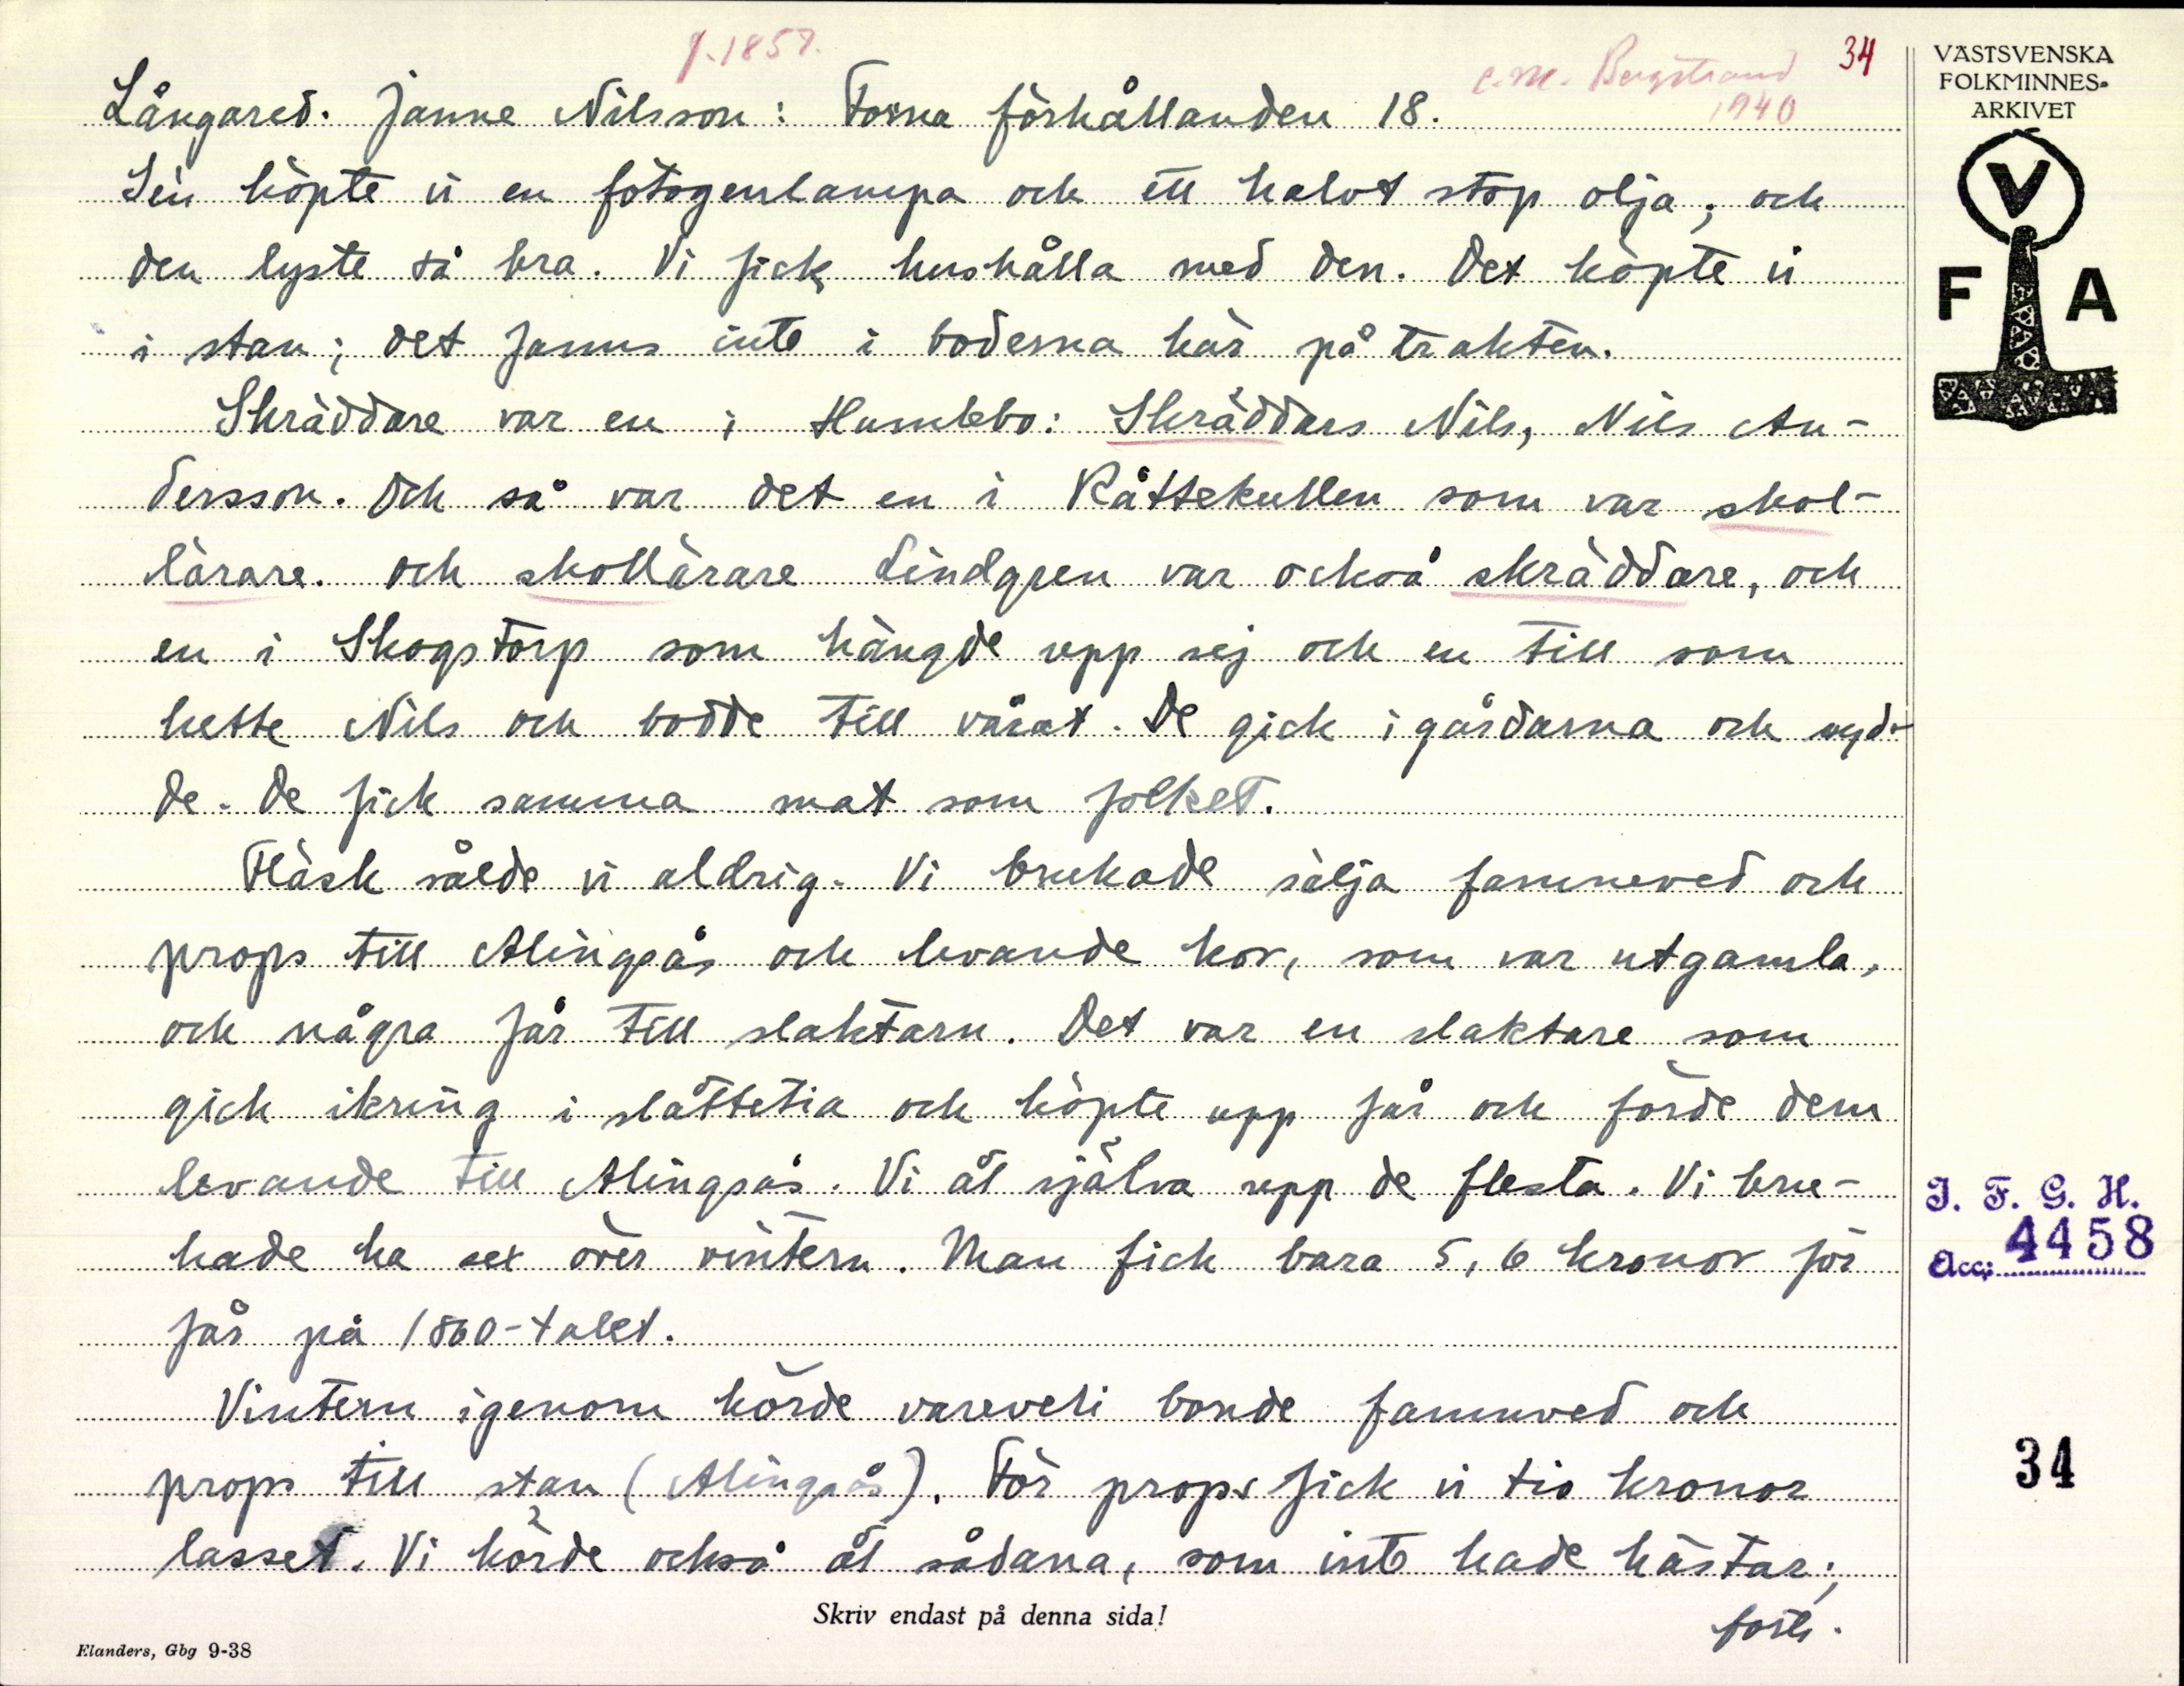 f. 1857.
C.M. Bergstrand
1940
34
Långared. Janne Nilsson: Forna förhållanden 18.
Sen köpte vi en fotogenlampa och ett halvt stop olja; och
den lyste så bra. Vi fick hushålla med den. Det köpte vi
i stan; det fanns inte i boderna här på trakten.
Skräddare var en i Humlebo: Skräddars Nils, Nils An-
dersson. Och så var det en i Råttekullen som var skol-
lärare. och skollärare Lindgren var också skräddare, och
en i Skogstorp som hängde upp sej och en till som
hette Nils och bodde till vårat. De gick i gårdarna och syd-
de. De fick samma mat som folket.
Fläsk sålde vi aldrig. Vi brukade sälja famneved och
props till Alingsås och levande kor, som var utgamla,
och några får till slaktarn. Det var en slaktare som
gick ikring i slåttetia och köpte upp får och förde dem
levande till Alingsås. Vi åt själva upp de flesta. Vi bru-
kade ha sex över vintern. Man fick bara 5, 6 kronor för
får på 1860-talet.
Vintern igenom körde vareveli bonde famnved och
props till stan (Alingsås). För props fick vi tio kronor
lasset. Vi körde också åt sådana, som inte hade hästar;
forts.
Skriv endast på denna sida!
Elanders, Gbg 9-38
VÄSTSVENSKA
FOLKMINNES-
ARKIVET
V
F A
I. F. G. H.
Acc: 4458
34